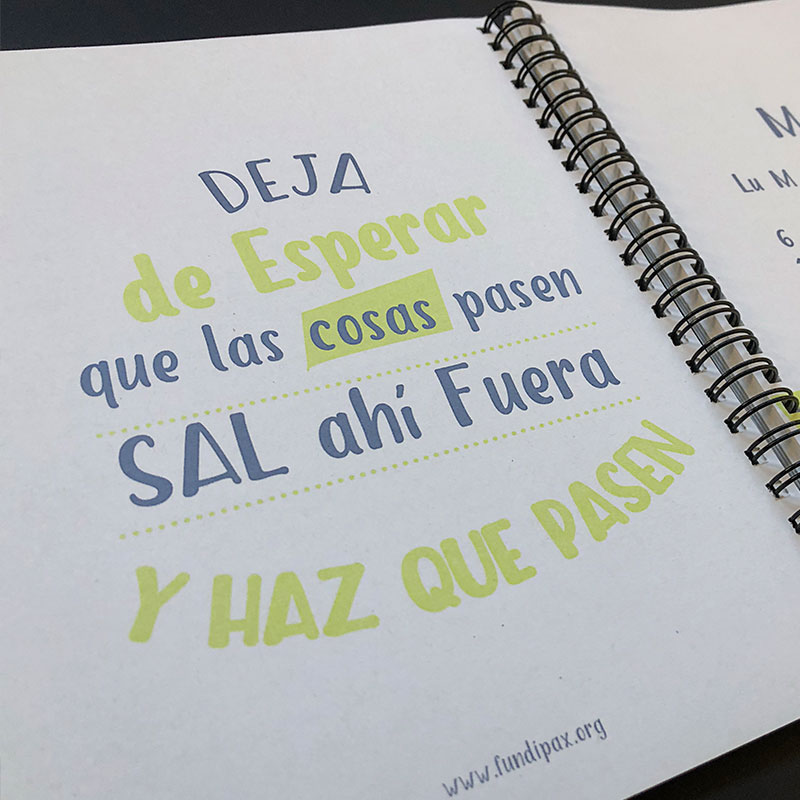 DEJA
de Esperar
que las cosas pasen
SAL ahí Fuera
Y HAZ QUE PASEN
www.fundipax.org
M
Lu M
6